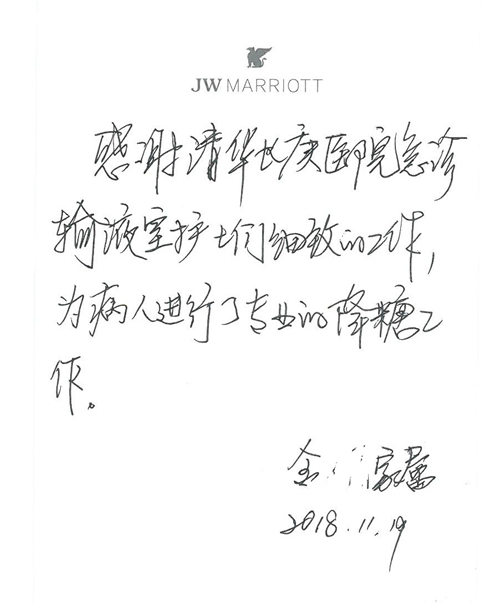 JW MARRIOTT
感谢清华长庚医院急诊
输液室护士们细致的工作，
为病人进行了专业的降糖工
作。
金 家属
2018.11.19